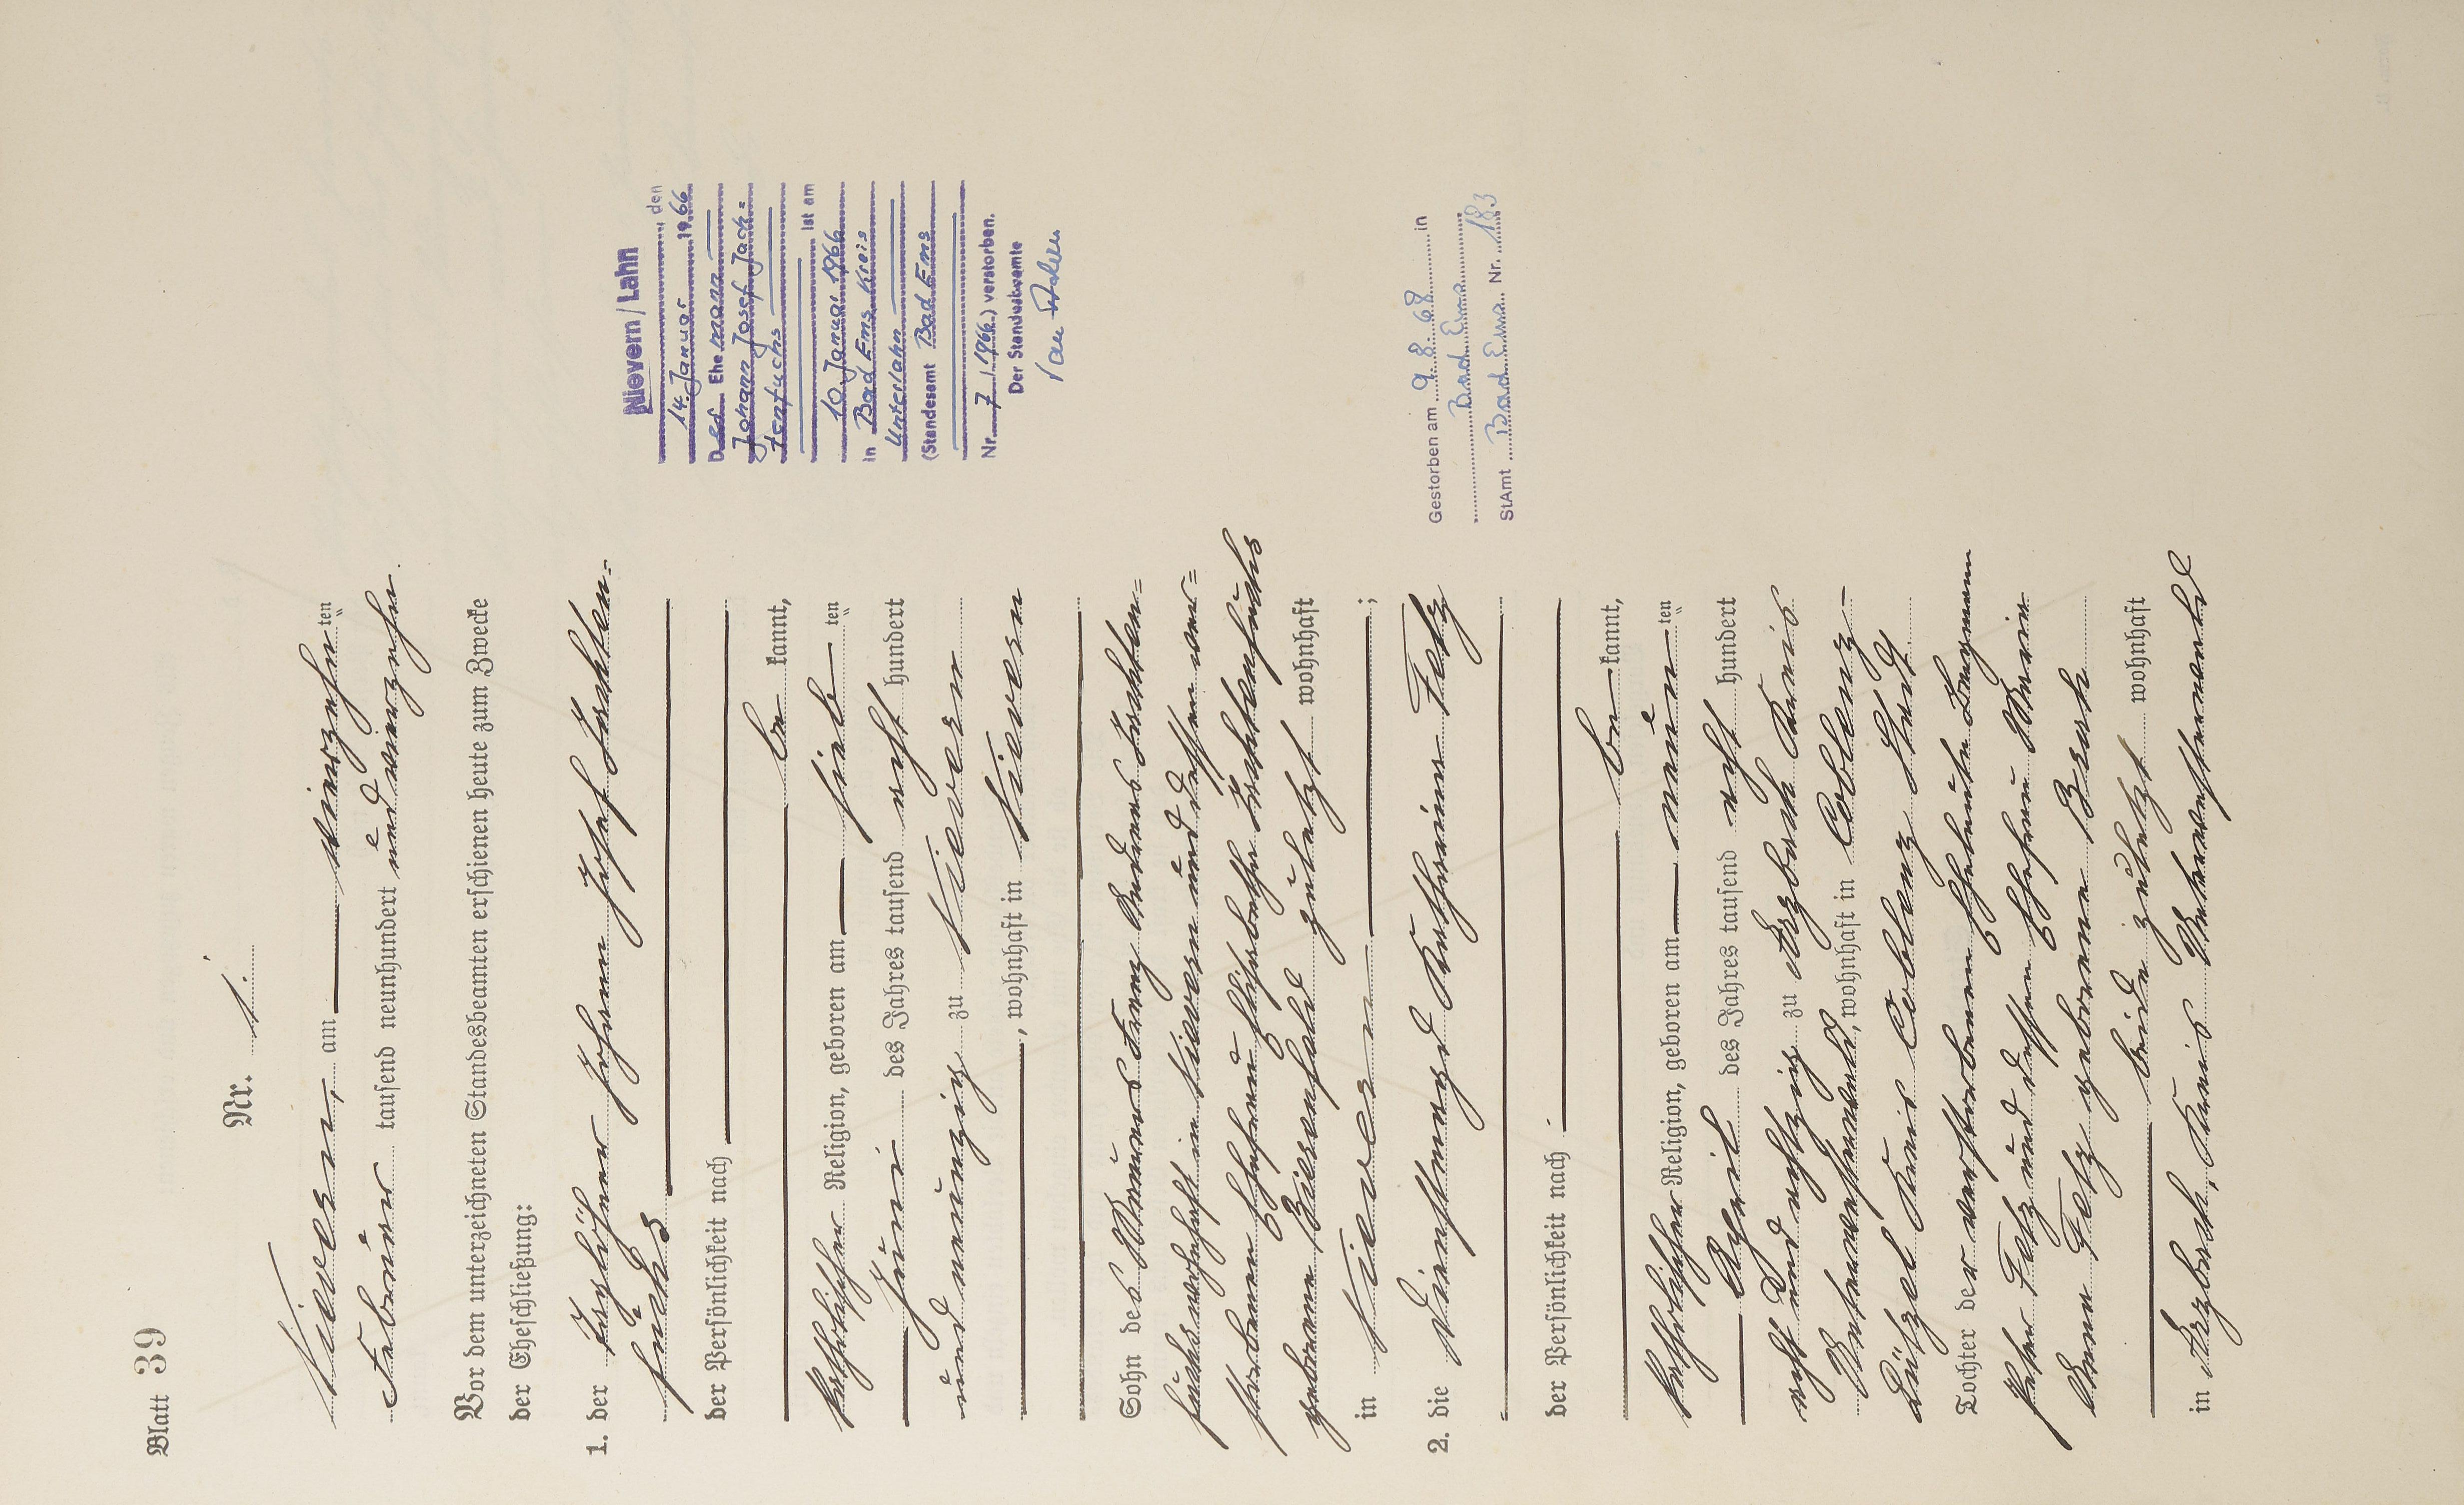 Blatt 39
Nr. 1.
Nievern, am vierzehnten
Februar tausend neunhundert und vierzehn.
Vor dem unterzeichneten Standesbeamten erschienen heute zum Zwecke
der Eheschließung:
1. der Taglöhner Johann Josef Jachten-
fuchs
der Persönlichkeit nach
be kannt,
katholischer Religion, geboren am sieb ten
Juni des Jahres tausend acht hundert
und neunzig zu Nievern
, wohnhaft in Nievern
Sohn des Maurers Franz Andreas Jachten-
fuchs wohnhaft in Nievern und dessen ver-
storbenen Ehefrau Elisabetha Jachtenfuchs
geborene zuletzt wohnhaft
in Nievern ;
2. die Dienstmagd Katharina Fetz
der Persönlichkeit nach
be kannt,
katholischer Religion, geboren am neun ten
April des Jahres tausend acht hundert
acht und achtzig zu Arzbach Kreis
Unterwesterwald, wohnhaft in Coblenz-
Lützel Kreis Coblenz Stadt
Tochter der verstorbenen Eheleute Bergmann
Peter Fetz und dessen Ehefrau Maria
Anna Fetz geborene Bach
beide zuletzt wohnhaft
in Arzbach, Kreis Unterwesterwald
Nievern/Lahn
, den
14. Januar 1966
Der Ehemann
Johann Josef Jach=
tenfuchs
ist am
10. Januar 1966
in Bad Ems, Kreis
Unterlahn
(Standesamt Bad Ems
Nr. 7/1966) verstorben.
Der Standesbeamte
Gestorben am 9.8.68 in
Bad Ems
StAmt Bad Ems Nr. 183